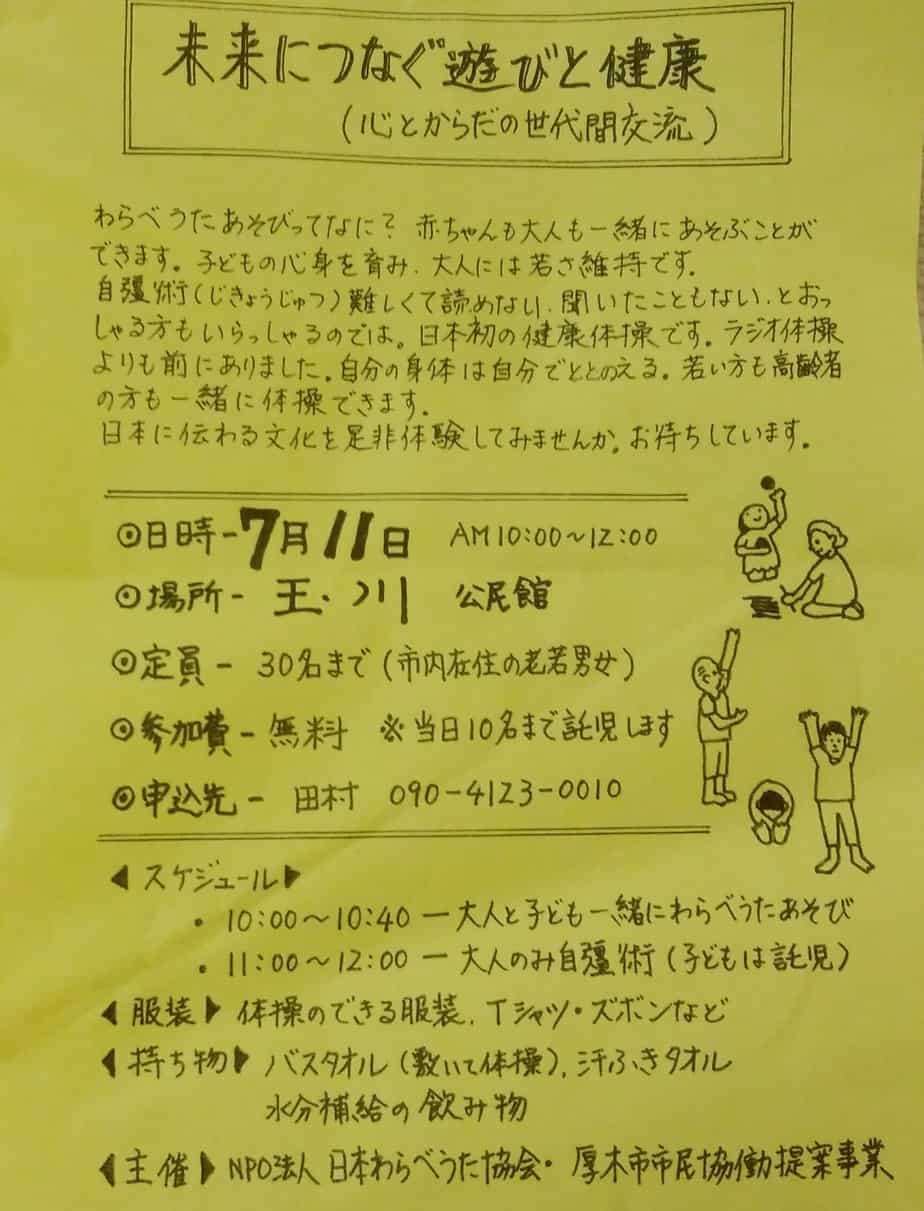 未来につなぐ遊びと健康
(心とからだの世代間交流)
わらべうたあそびってなに? 赤ちゃんも大人も一緒にあそぶことが
できます。子どもの心身を育み、大人には若さ維持です。
自彊術(じきょうじゅつ)難しくて読めない、聞いたこともない、とおっ
しゃる方もいらっしゃるのでは。日本初の健康体操です。ラジオ体操
よりも前にありました。自分の身体は自分でととのえる。若い方も高齢者
の方も一緒に体操できます。
日本に伝わる文化を是非体験してみませんか。お待ちしています。
◎日時-7月11日 AM10:00~12:00
◎場所- 玉川 公民館
◎定員- 30名まで(市内在住の老若男女)
◎参加費- 無料 ※当日10名まで託児します
◎申込先- 田村 090-4123-0010
◀スケジュール▶
・10:00~10:40 ー大人と子ども一緒にわらべうたあそび
・11:00~12:00 ー大人のみ自彊術(子どもは託児)
◀服装▶ 体操のできる服装、Tシャツ・ズボンなど
◀持ち物▶ バスタオル(敷いて体操)、汗ふきタオル
水分補給の飲み物
◀主催▶NPO法人 日本わらべうた協会・厚木市市民協働提案事業